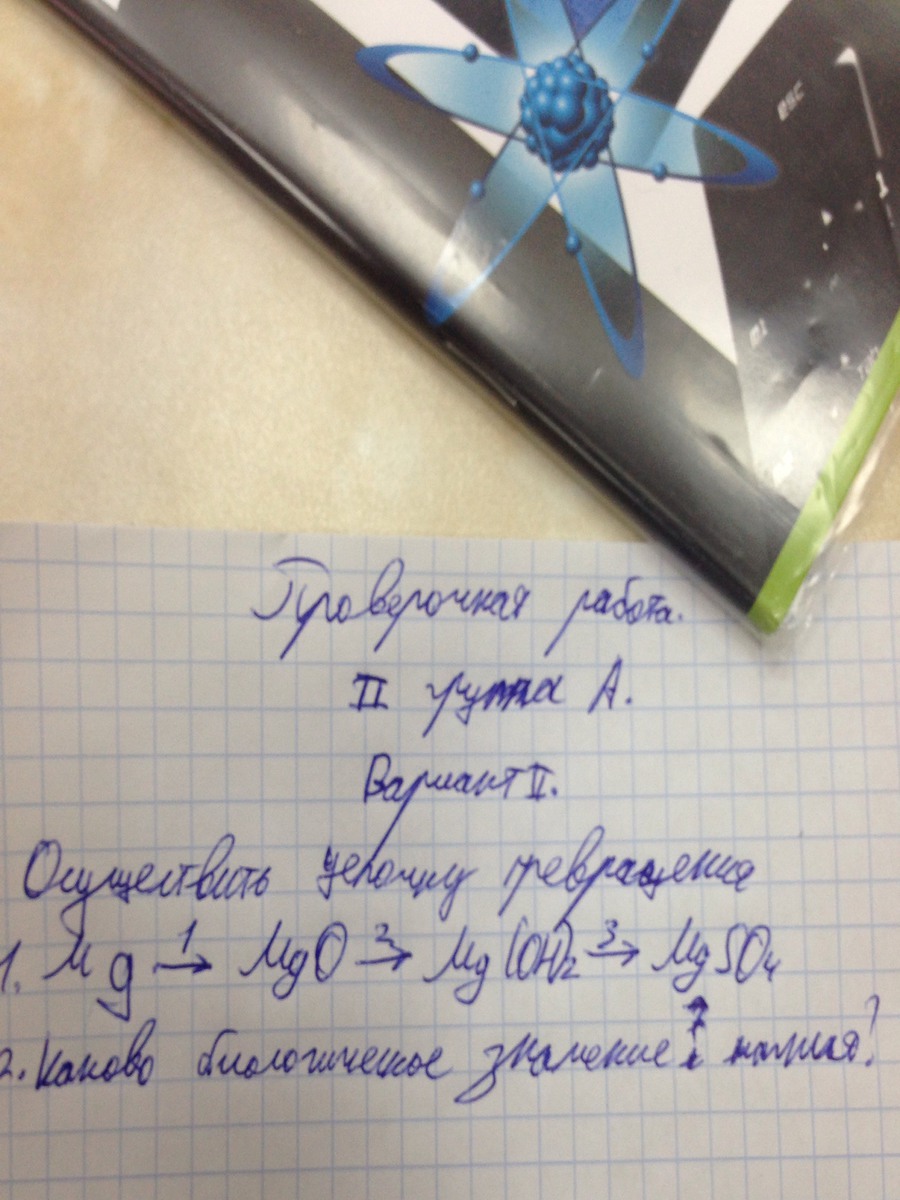 esc
1
@!
Tab
Проверочная работа.
II группа А.
Вариант II.
Осуществить цепочку превращения
1. Mg 1→ MgO 2→ Mg(OH)2 3→ MgSO4
2. Каково биологическое значение магния?